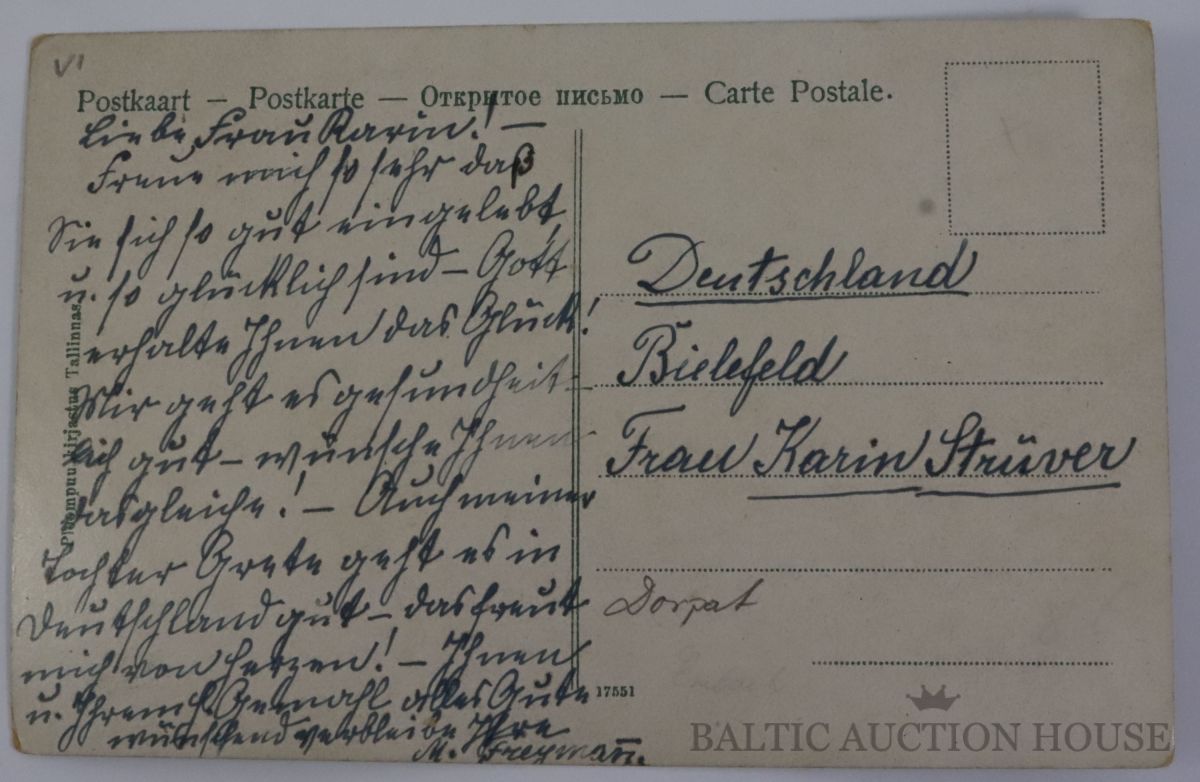 VI
Postkaart – Postkarte — Открытое письмо — Carte Postale.
Liebe Frau Karin! –
Freue mich so sehr daß
Sie sich so gut eingelebt,
u. so glücklich sind – Gott
erhalte Ihnen das Glück!
Mir geht es gesundheit-
lich gut – wünsche Ihnen
dasgleiche! – Auch meiner
Tochter Grete geht es in
Deutschland gut – das freut
mich von Herzen! – Ihnen
u. Ihrem Gemahl alles Gute
wünschend verbleibe Ihre
M. Freymann.
Deutschland
Bielefeld
Frau Karin Strüver
Dorpat
17551
Tallinnas
BALTIC AUCTION HOUSE